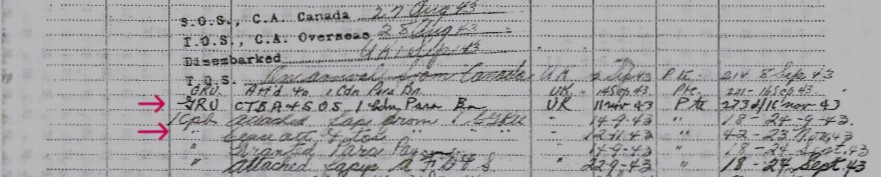 S.O.S., C.A. Canada 27 Aug 43
T.O.S., C.A. Overseas 28 Aug 43
Disembarked UK 1 Sep 43
T.O.S. from Canada UK 2 Sep 43 Pte 214 8 Sep 43
GRU Att'd to 1 Cdn Para Bn UK 14 Sep 43 Pte. 221-16 Sep. 43
GRU CTBA & S.O.S, 1 Cdn Para Bn UR 11 nov 43 Pte 273 d/16 nov 43
1 Cpb attached from " 14-9-43 " 18-24-9-43
" cease att & TOS " 12-11-43 " 42-23 Nov. 43
" Granted Para Pay " 14-9-43 " 18-24 Sept. 43
" attached " 22-9-43 " 18-24 Sept. 43